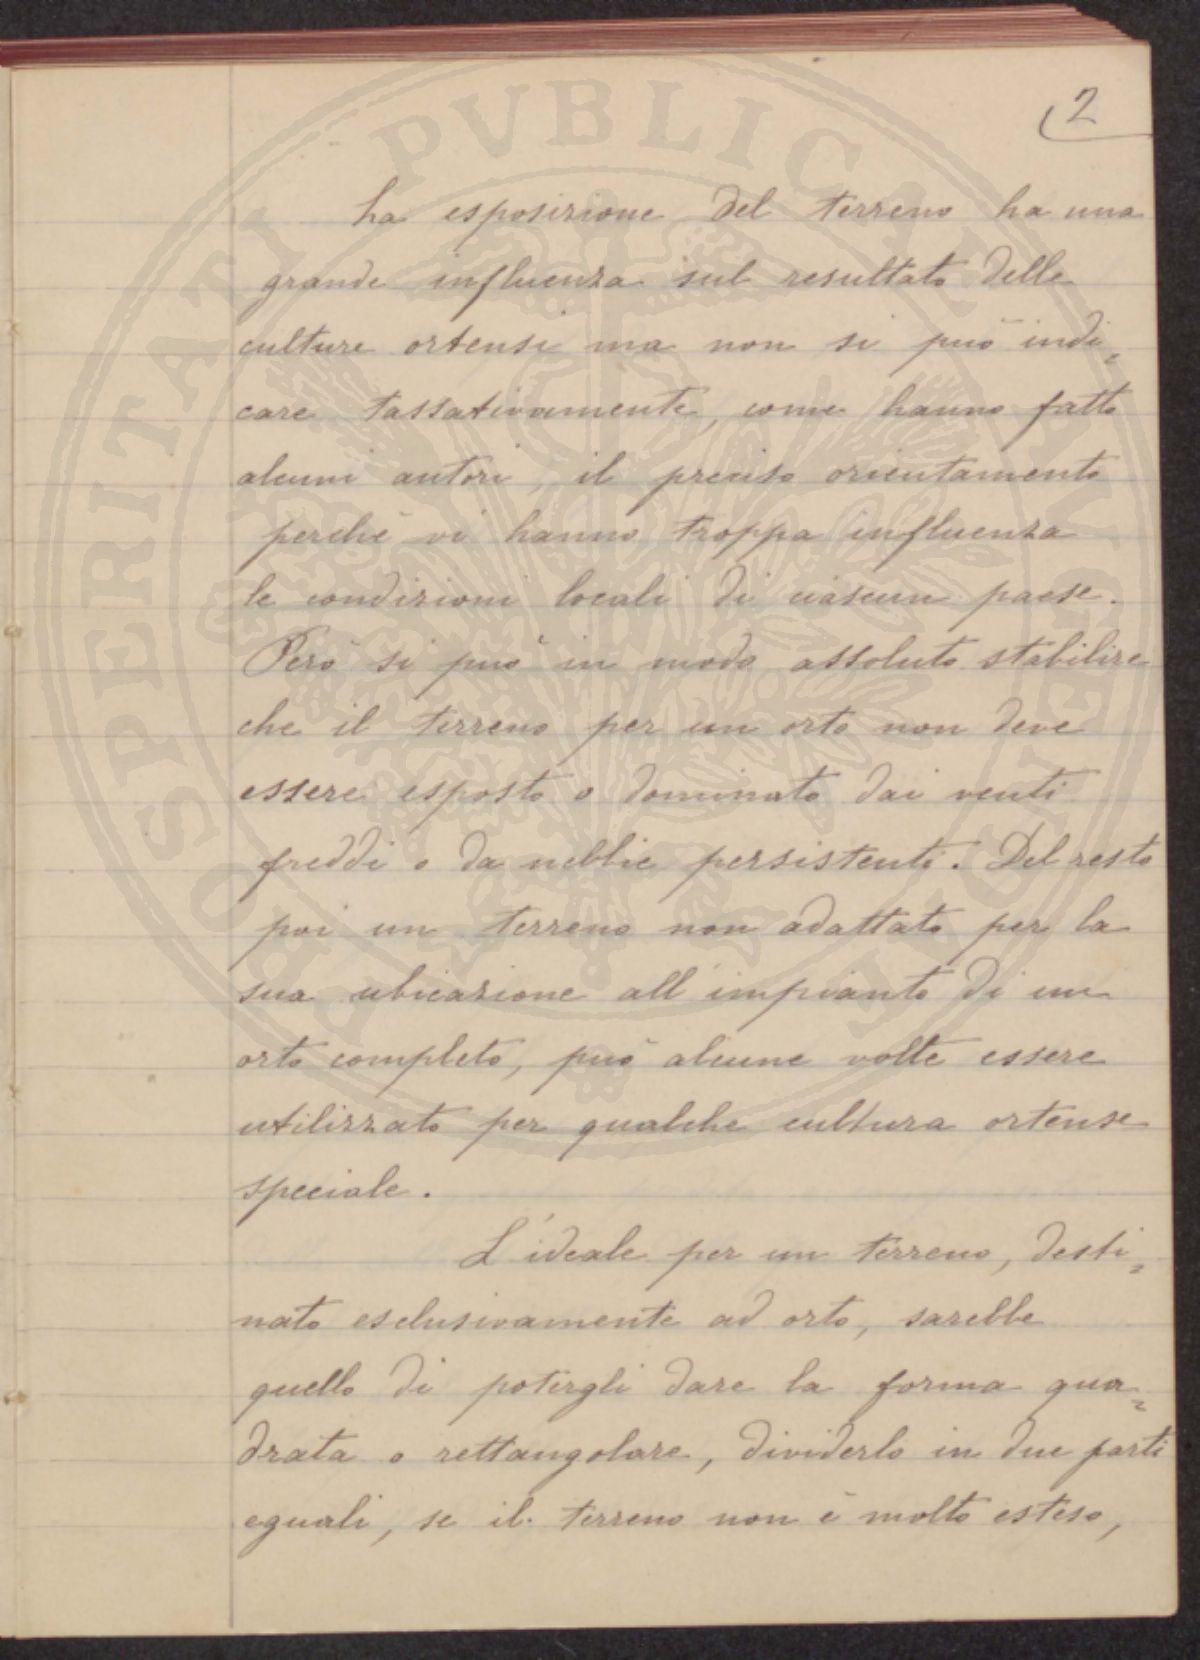 2
La esposizione del terreno ha una
grande influenza sul resultato delle
culture ortensi ma non si può indi=
care tassativamente, come hanno fatto
alcuni autori, il preciso orientamento
perchè vi hanno troppa influenza
le condizioni locali di ciascun paese.
Però si può in modo assoluto stabilire
che il terreno per un orto non deve
essere esposto o dominato dai venti
freddi o da nebbie persistenti. Del resto
poi un terreno non adattato per la
sua ubicazione all'impianto di un
orto completo, può alcune volte essere
utilizzato per qualche cultura ortense
speciale.
L'ideale per un terreno, desti=
nato esclusivamente ad orto, sarebbe
quello di potergli dare la forma qua=
drata o rettangolare, dividerlo in due parti
eguali, se il terreno non è molto esteso,
PROSPERITATI PVBLICAE AVGENDAE